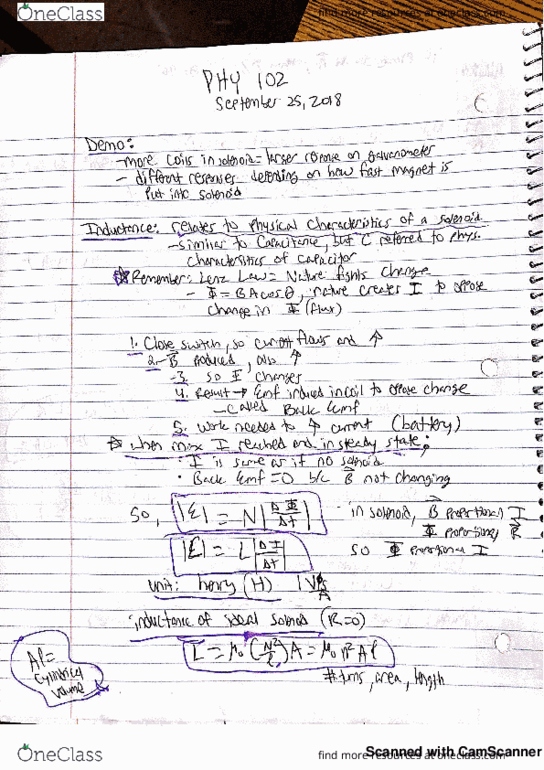 OneClass
find more resources at oneclass.com
PHY 102
September 25, 2018
Demo:
- more coils in solenoid = larger response on galvanometer
- different responses depending on how fast magnet is
put into solenoid
Inductance: relates to physical characteristics of a solenoid
- similar to capacitance, but C referred to phys.
characteristics of capacitor
Remember: Lenz Law = Nature fights change
- Φ = BAcosθ, nature creates I to oppose
change in Φ (flux)
1. Close switch, so current flows and ↑
2. B⃗ produced, also ↑
3. so Φ changes
4. Result → Emf induced in coil to oppose change
- called Back Emf
5. Work needed to ↑ current (battery)
when max I reached and in steady state:
• I is same as if no solenoid
• Back Emf = 0 b/c B⃗ not changing
So, |ε| = N|ΔΦ/Δt|
in solenoid, B⃗ proportional I
Φ proportional B⃗
|ε| = L|ΔI/Δt|
so Φ proportional I
unit: henry (H)
inductance of ideal solenoid (R=0)
L = μ₀(N²/ℓ)A = μ₀n²Aℓ
# turns, area, length
Aℓ =
cylindrical
volume
OneClass
find more resources at oneclass.com
Scanned with CamScanner